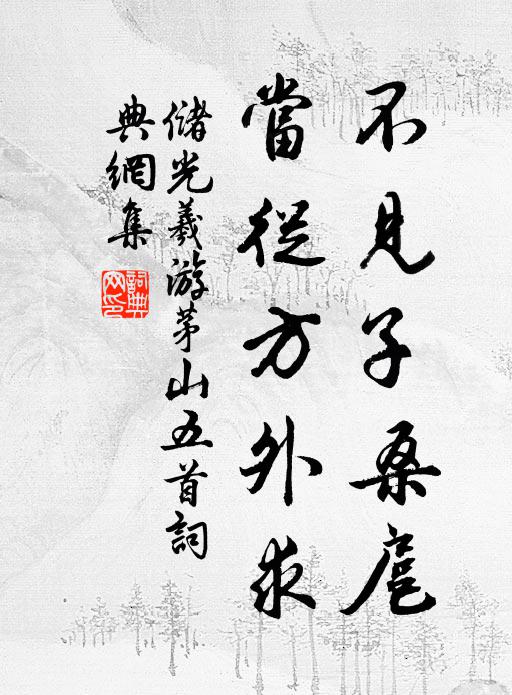 不見子桑扈
當從方外求
儲光羲游茅山五首詞
典網集
詞典網印